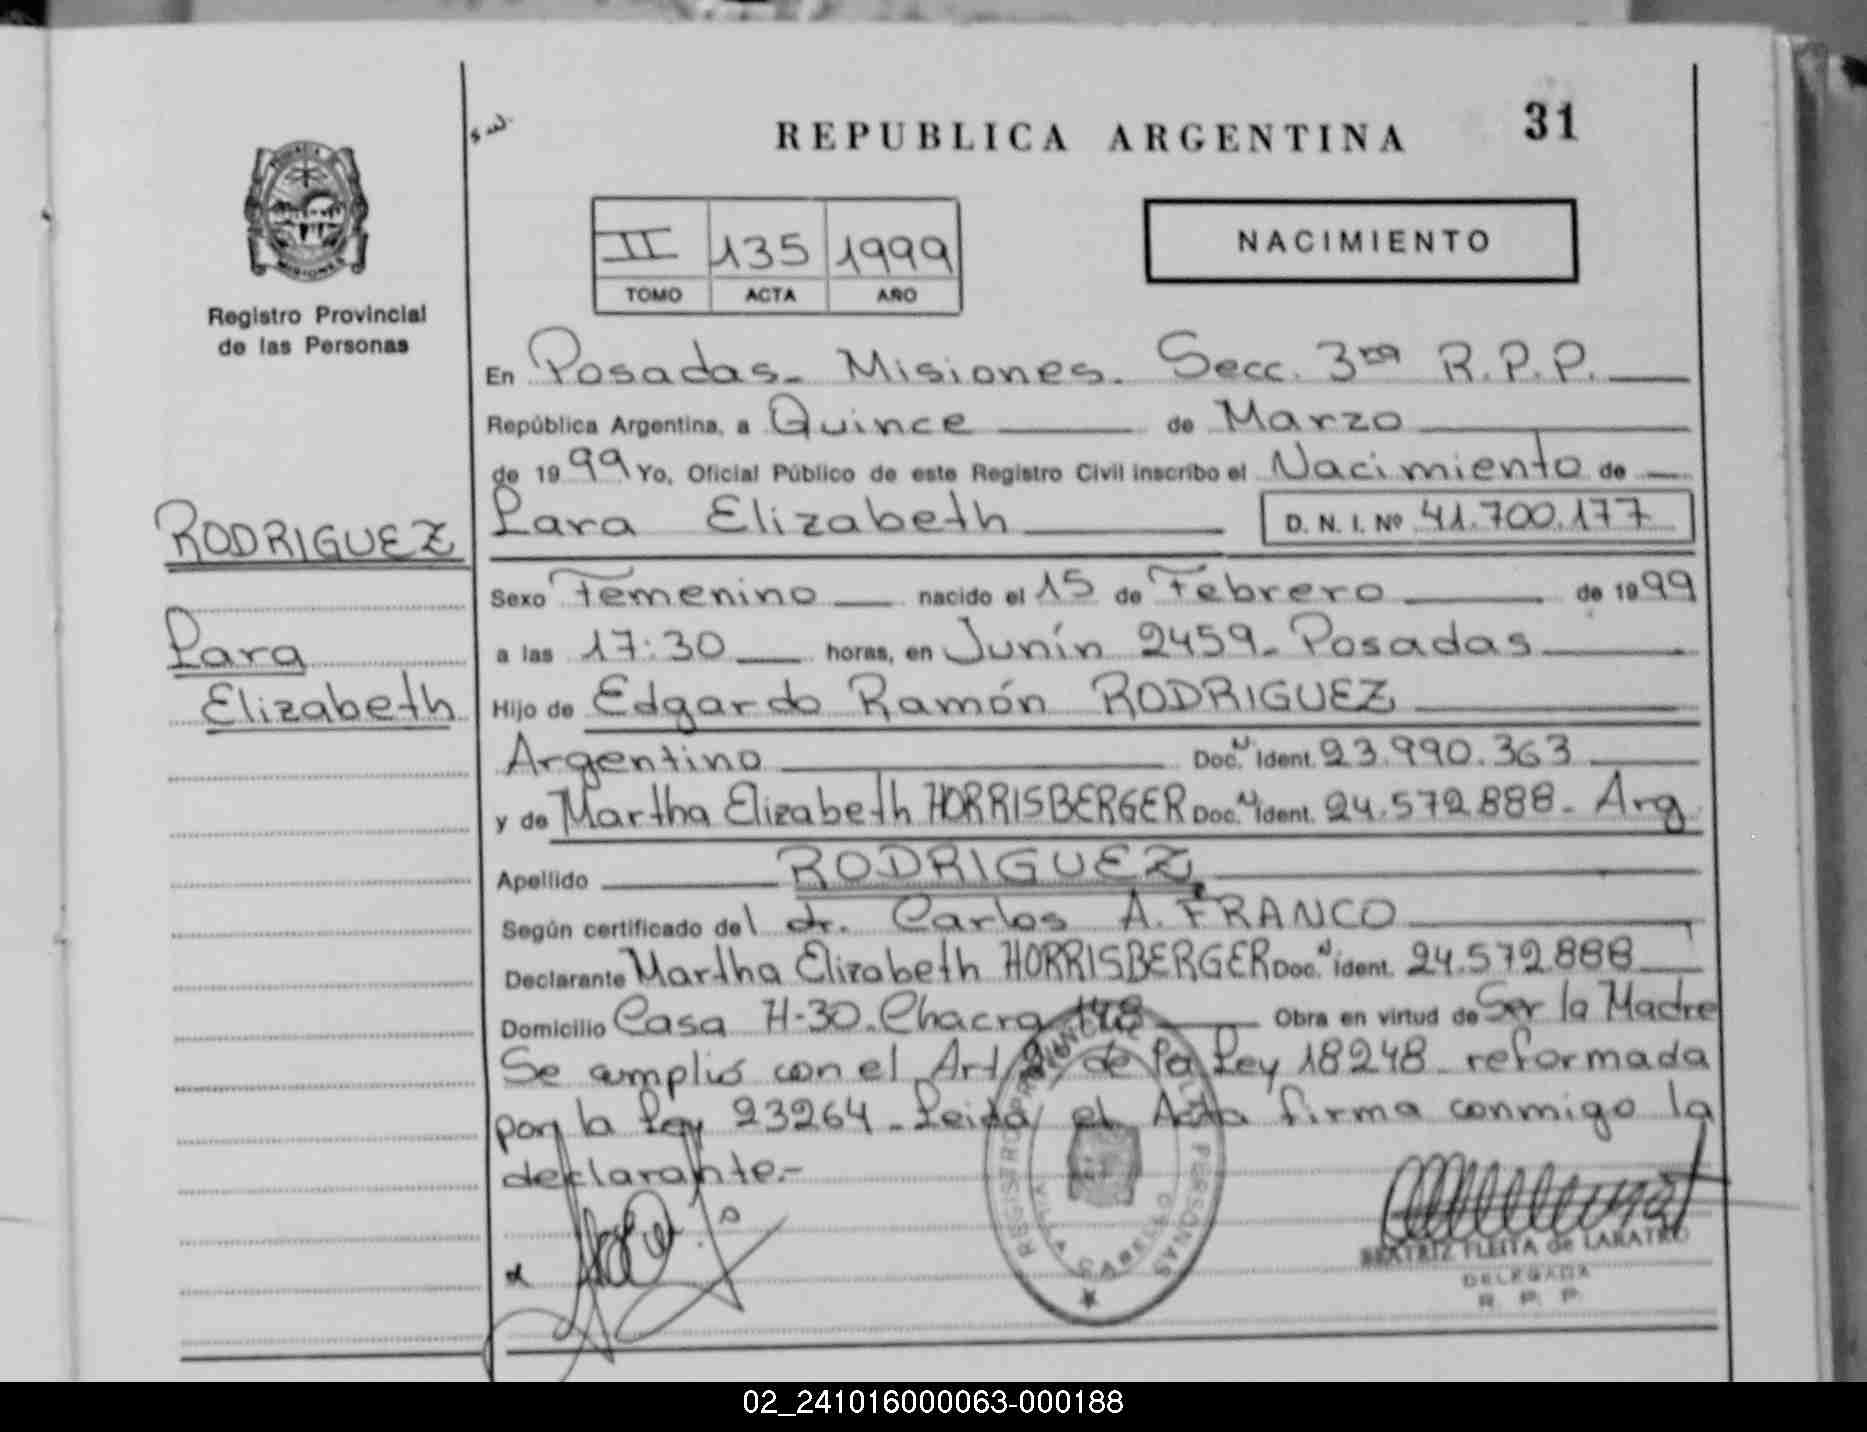 REPUBLICA ARGENTINA
31
PROVINCIA DE
MISIONES
Registro Provincial
de las Personas
II 135 1999
TOMO ACTA AÑO
NACIMIENTO
En Posadas - Misiones. Secc. 3ra R.P.P.
República Argentina, a Quince de Marzo
de 1999 Yo, Oficial Público de este Registro Civil inscribo el Nacimiento de
Lara Elizabeth D. N. I. Nº 41.700.177
RODRIGUEZ
Lara
Elizabeth
Sexo Femenino nacido el 15 de Febrero de 1999
a las 17:30 horas, en Junín 2459 - Posadas
Hijo de Edgardo Ramón RODRIGUEZ
Argentino Doc. Ident. 23.990.363
y de Martha Elizabeth HORRISBERGER Doc. Ident. 24.572.888 - Arg.
Apellido RODRIGUEZ
Según certificado del dr. Carlos A. FRANCO
Declarante Martha Elizabeth HORRISBERGER Doc. Ident. 24.572.888
Domicilio Casa H-30. Chacra 148 Obra en virtud de Ser la Madre
Se cumplió con el Art. de la Ley 18248 reformada
por la Ley 23264 - Leída el Acta firma conmigo la
declarante.-
REGISTRO PROVINCIAL DE LAS PERSONAS
VILLA CABELLO
BEATRIZ FLEITA de LABATRO
DELEGADA
R. P. P.
02_241016000063-000188